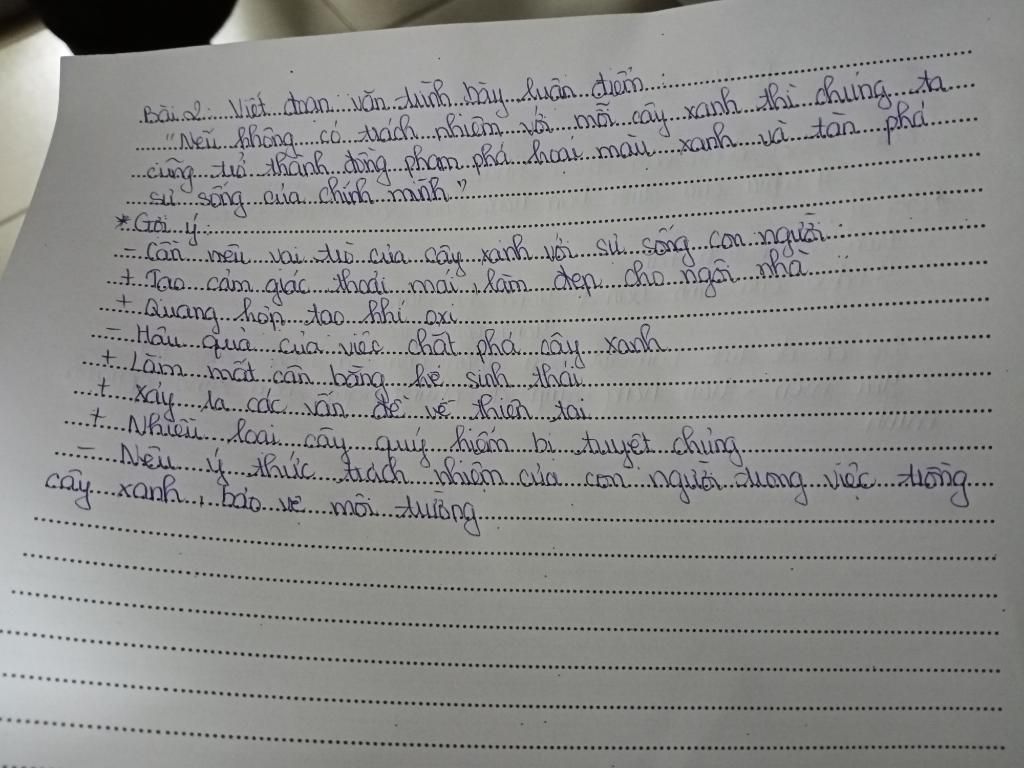 Bài 2: Viết đoạn văn trình bày luận điểm:
"Nếu không có trách nhiệm với mỗi cây xanh thì chúng ta
cũng trở thành đồng phạm phá hoại màu xanh và tàn phá
sự sống của chính mình"
* Gợi ý:
- Cần nêu vai trò của cây xanh với sự sống con người:
+ Tạo cảm giác thoải mái, làm đẹp cho ngôi nhà
+ Quang hợp tạo khí oxi
- Hậu quả của việc chặt phá cây xanh
+ Làm mất cân bằng hệ sinh thái
+ Xảy ra các vấn đề về thiên tai
+ Nhiều loại cây quý hiếm bị tuyệt chủng
- Nêu ý thức trách nhiệm của con người trong việc trồng
cây xanh, bảo vệ môi trường